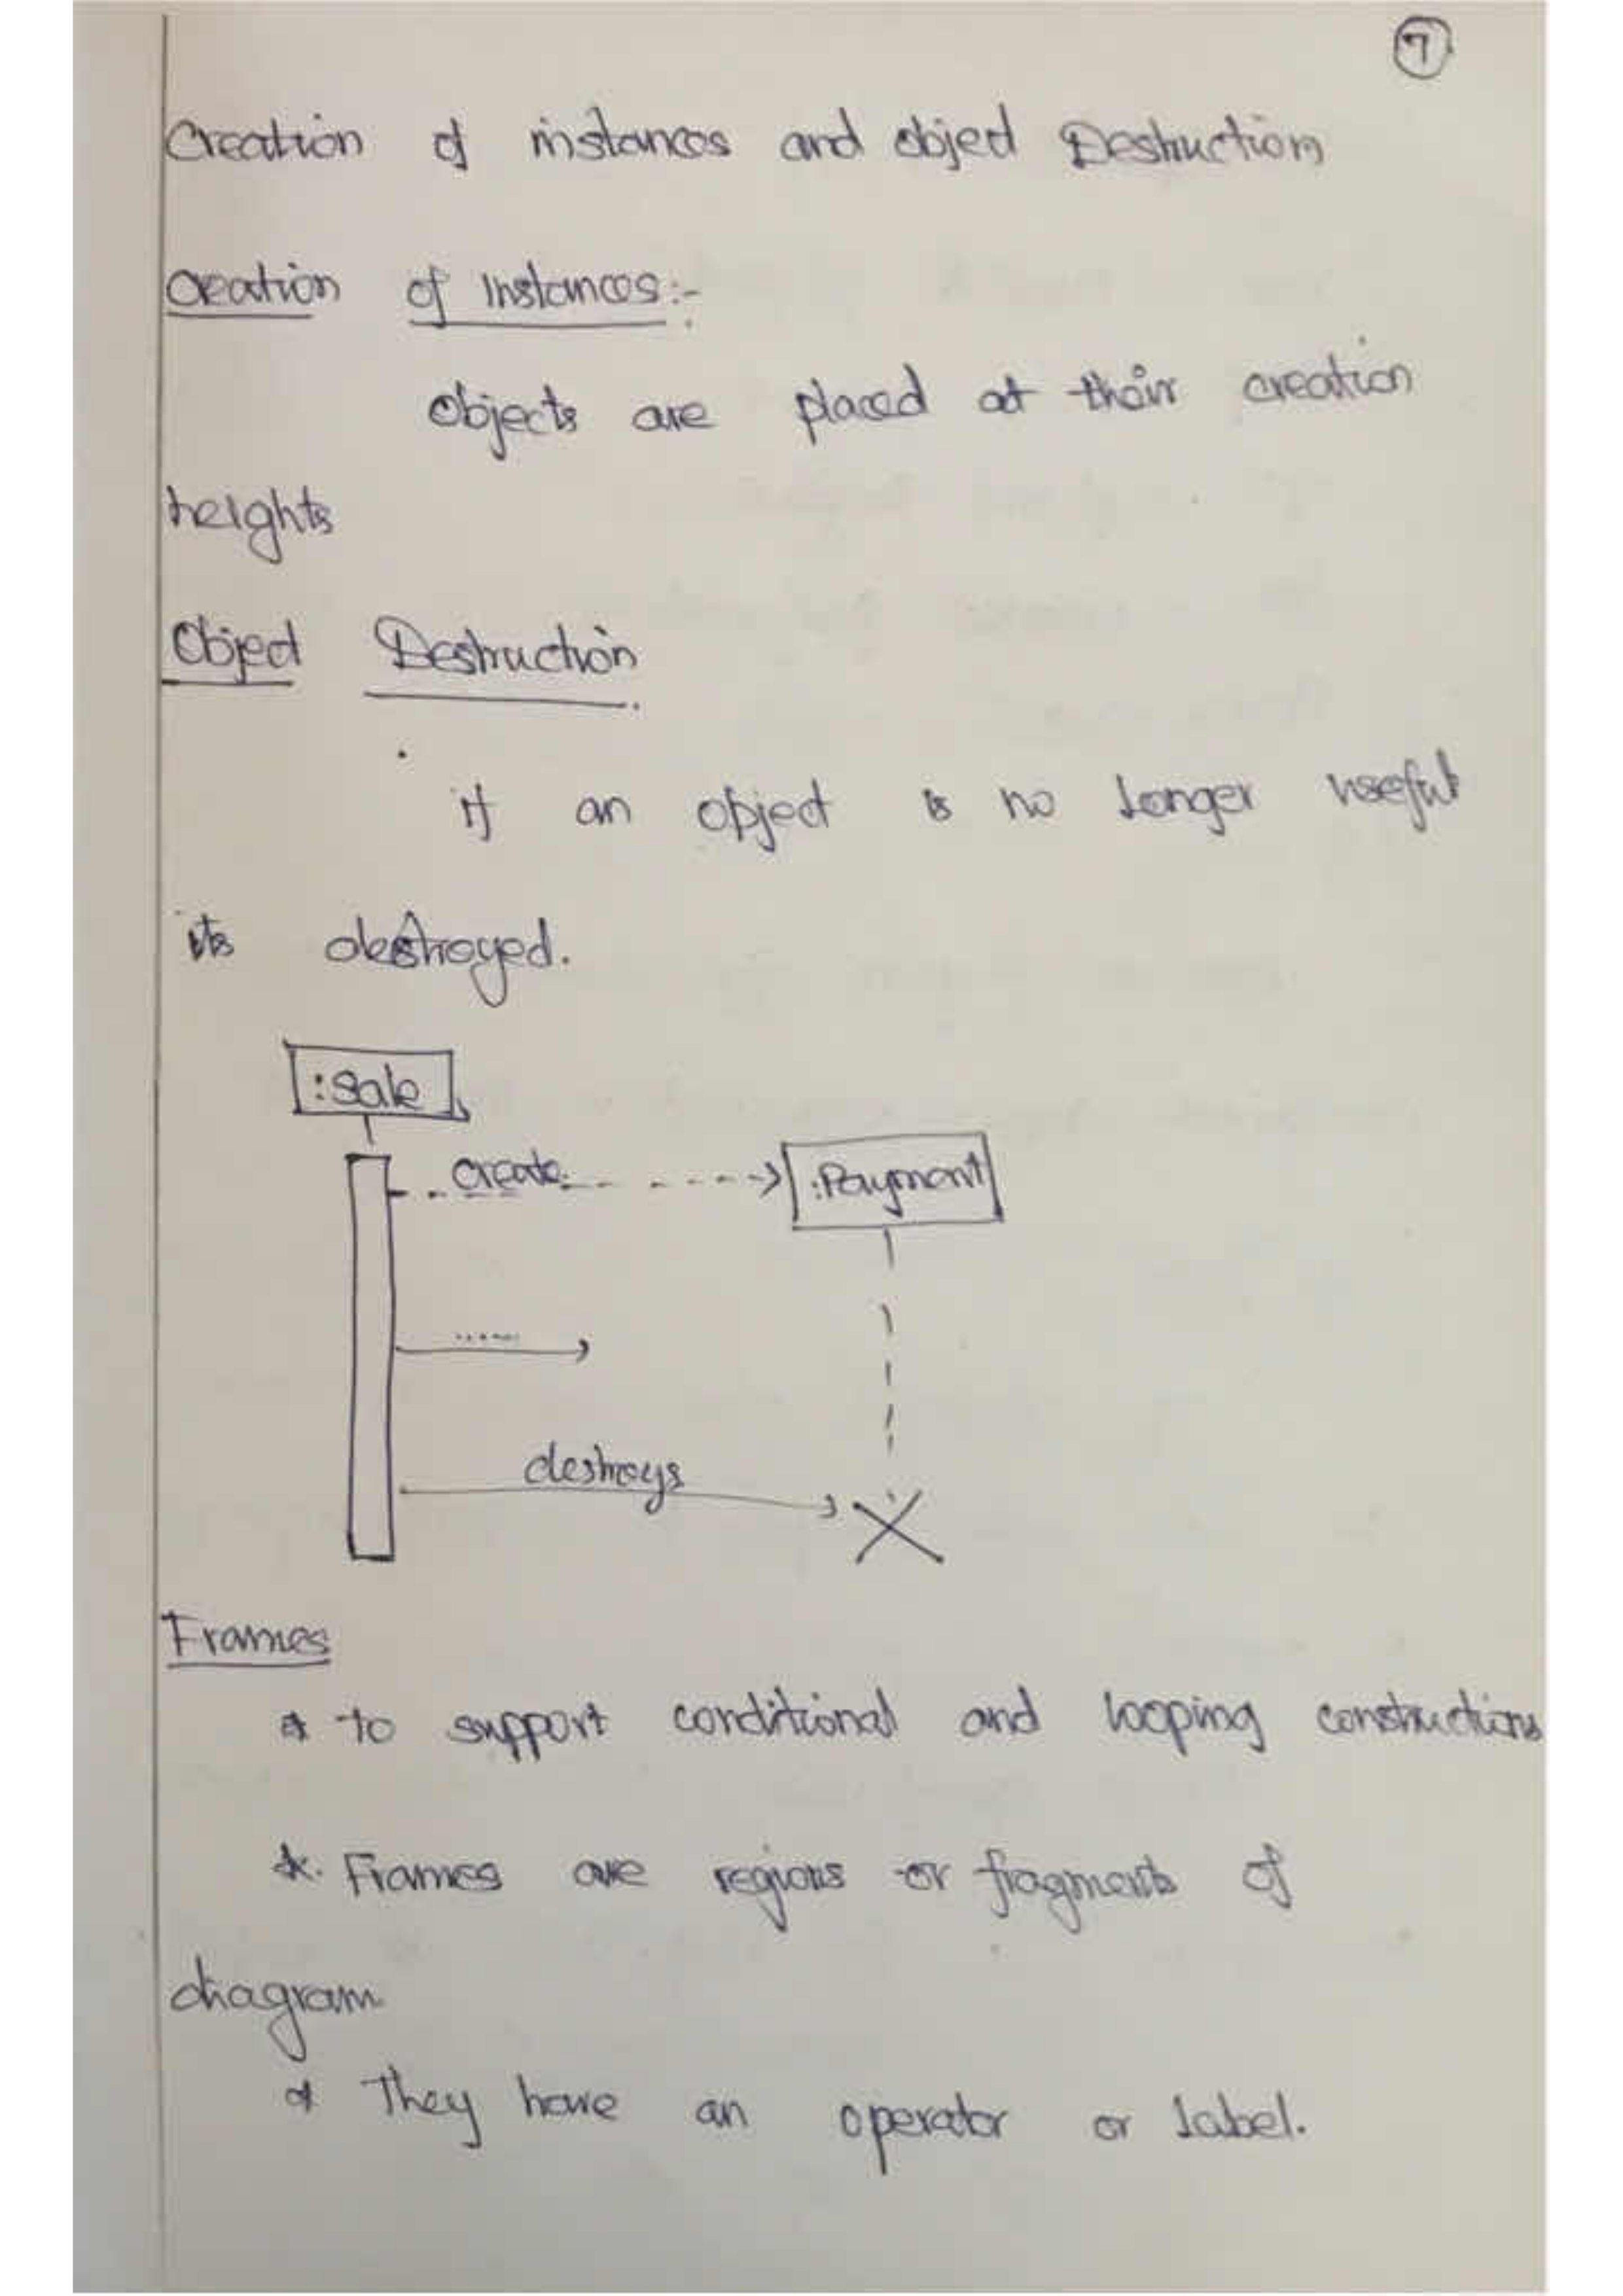 7
Creation of instances and object Destruction
Creation of Instances:-
Objects are placed at their creation
heights
Object Destruction
if an object is no longer useful
its destroyed.
:Sale
create
:Payment
.....
destroys
Frames
* to support conditional and looping constructions
*. Frames are regions or fragments of
diagram.
* They have an operator or label.